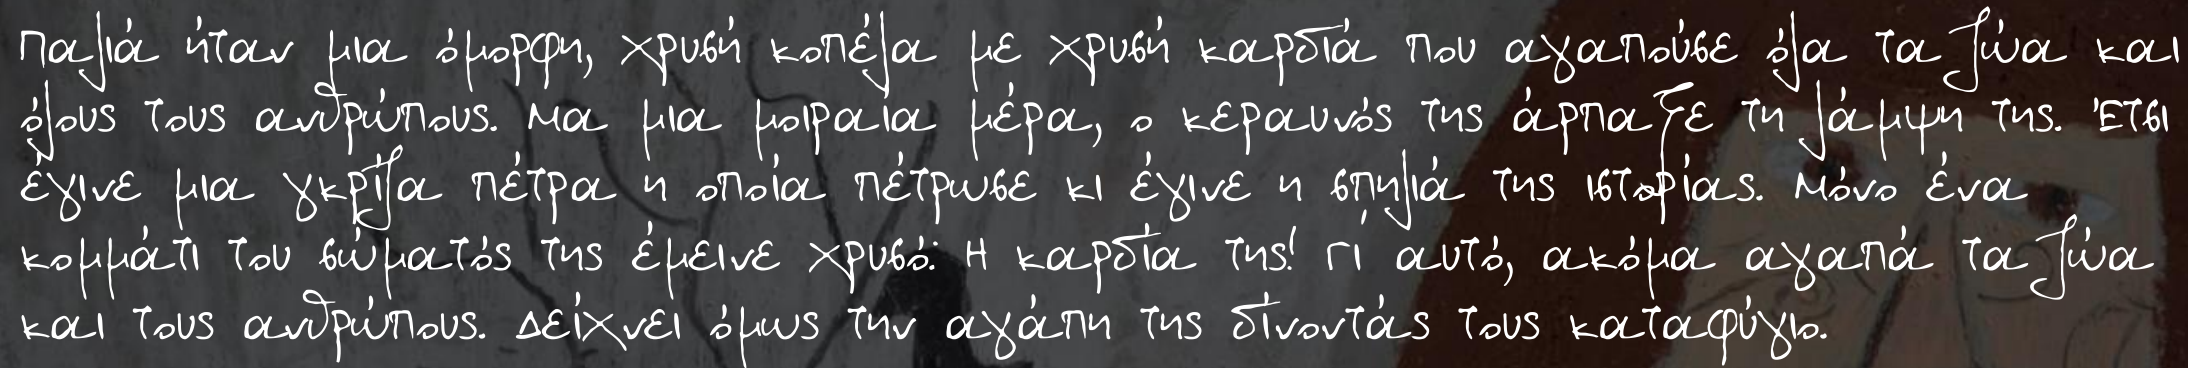 Παλιά ήταν μια όμορφη, χρυσή κοπέλα με χρυσή καρδιά που αγαπούσε όλα τα ζώα και
όλους τους ανθρώπους. Μα μια μοιραία μέρα, ο κεραυνός της άρπαξε τη λάμψη της. Έτσι
έγινε μια γκρίζα πέτρα η οποία πέτρωσε κι έγινε η σπηλιά της ιστορίας. Μόνο ένα
κομμάτι του σώματός της έμεινε χρυσό: Η καρδία της! Γι΄ αυτό, ακόμα αγαπά τα ζώα
και τους ανθρώπους. Δείχνει όμως την αγάπη της δίνοντάς τους καταφύγιο.